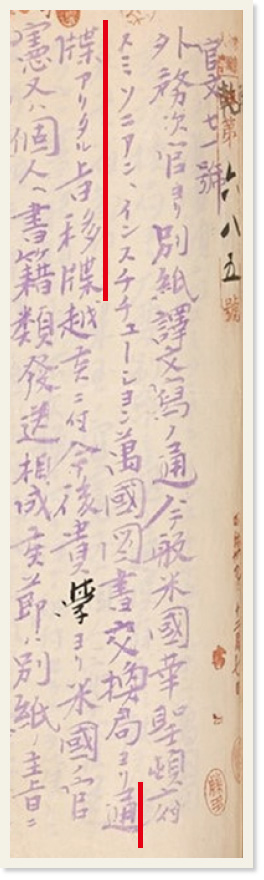 第六八五號
官文七一號
外務次官ヨリ別紙譯文寫ノ通今般米國華聖頓府
スミソニアン、インスチチューション萬國図書交換局ヨリ通
牒アリタル旨移牒越候ニ付今後貴學ヨリ米國ノ官
憲又ハ個人ヘ書籍類發送相成候節ハ別紙ノ主旨ニ